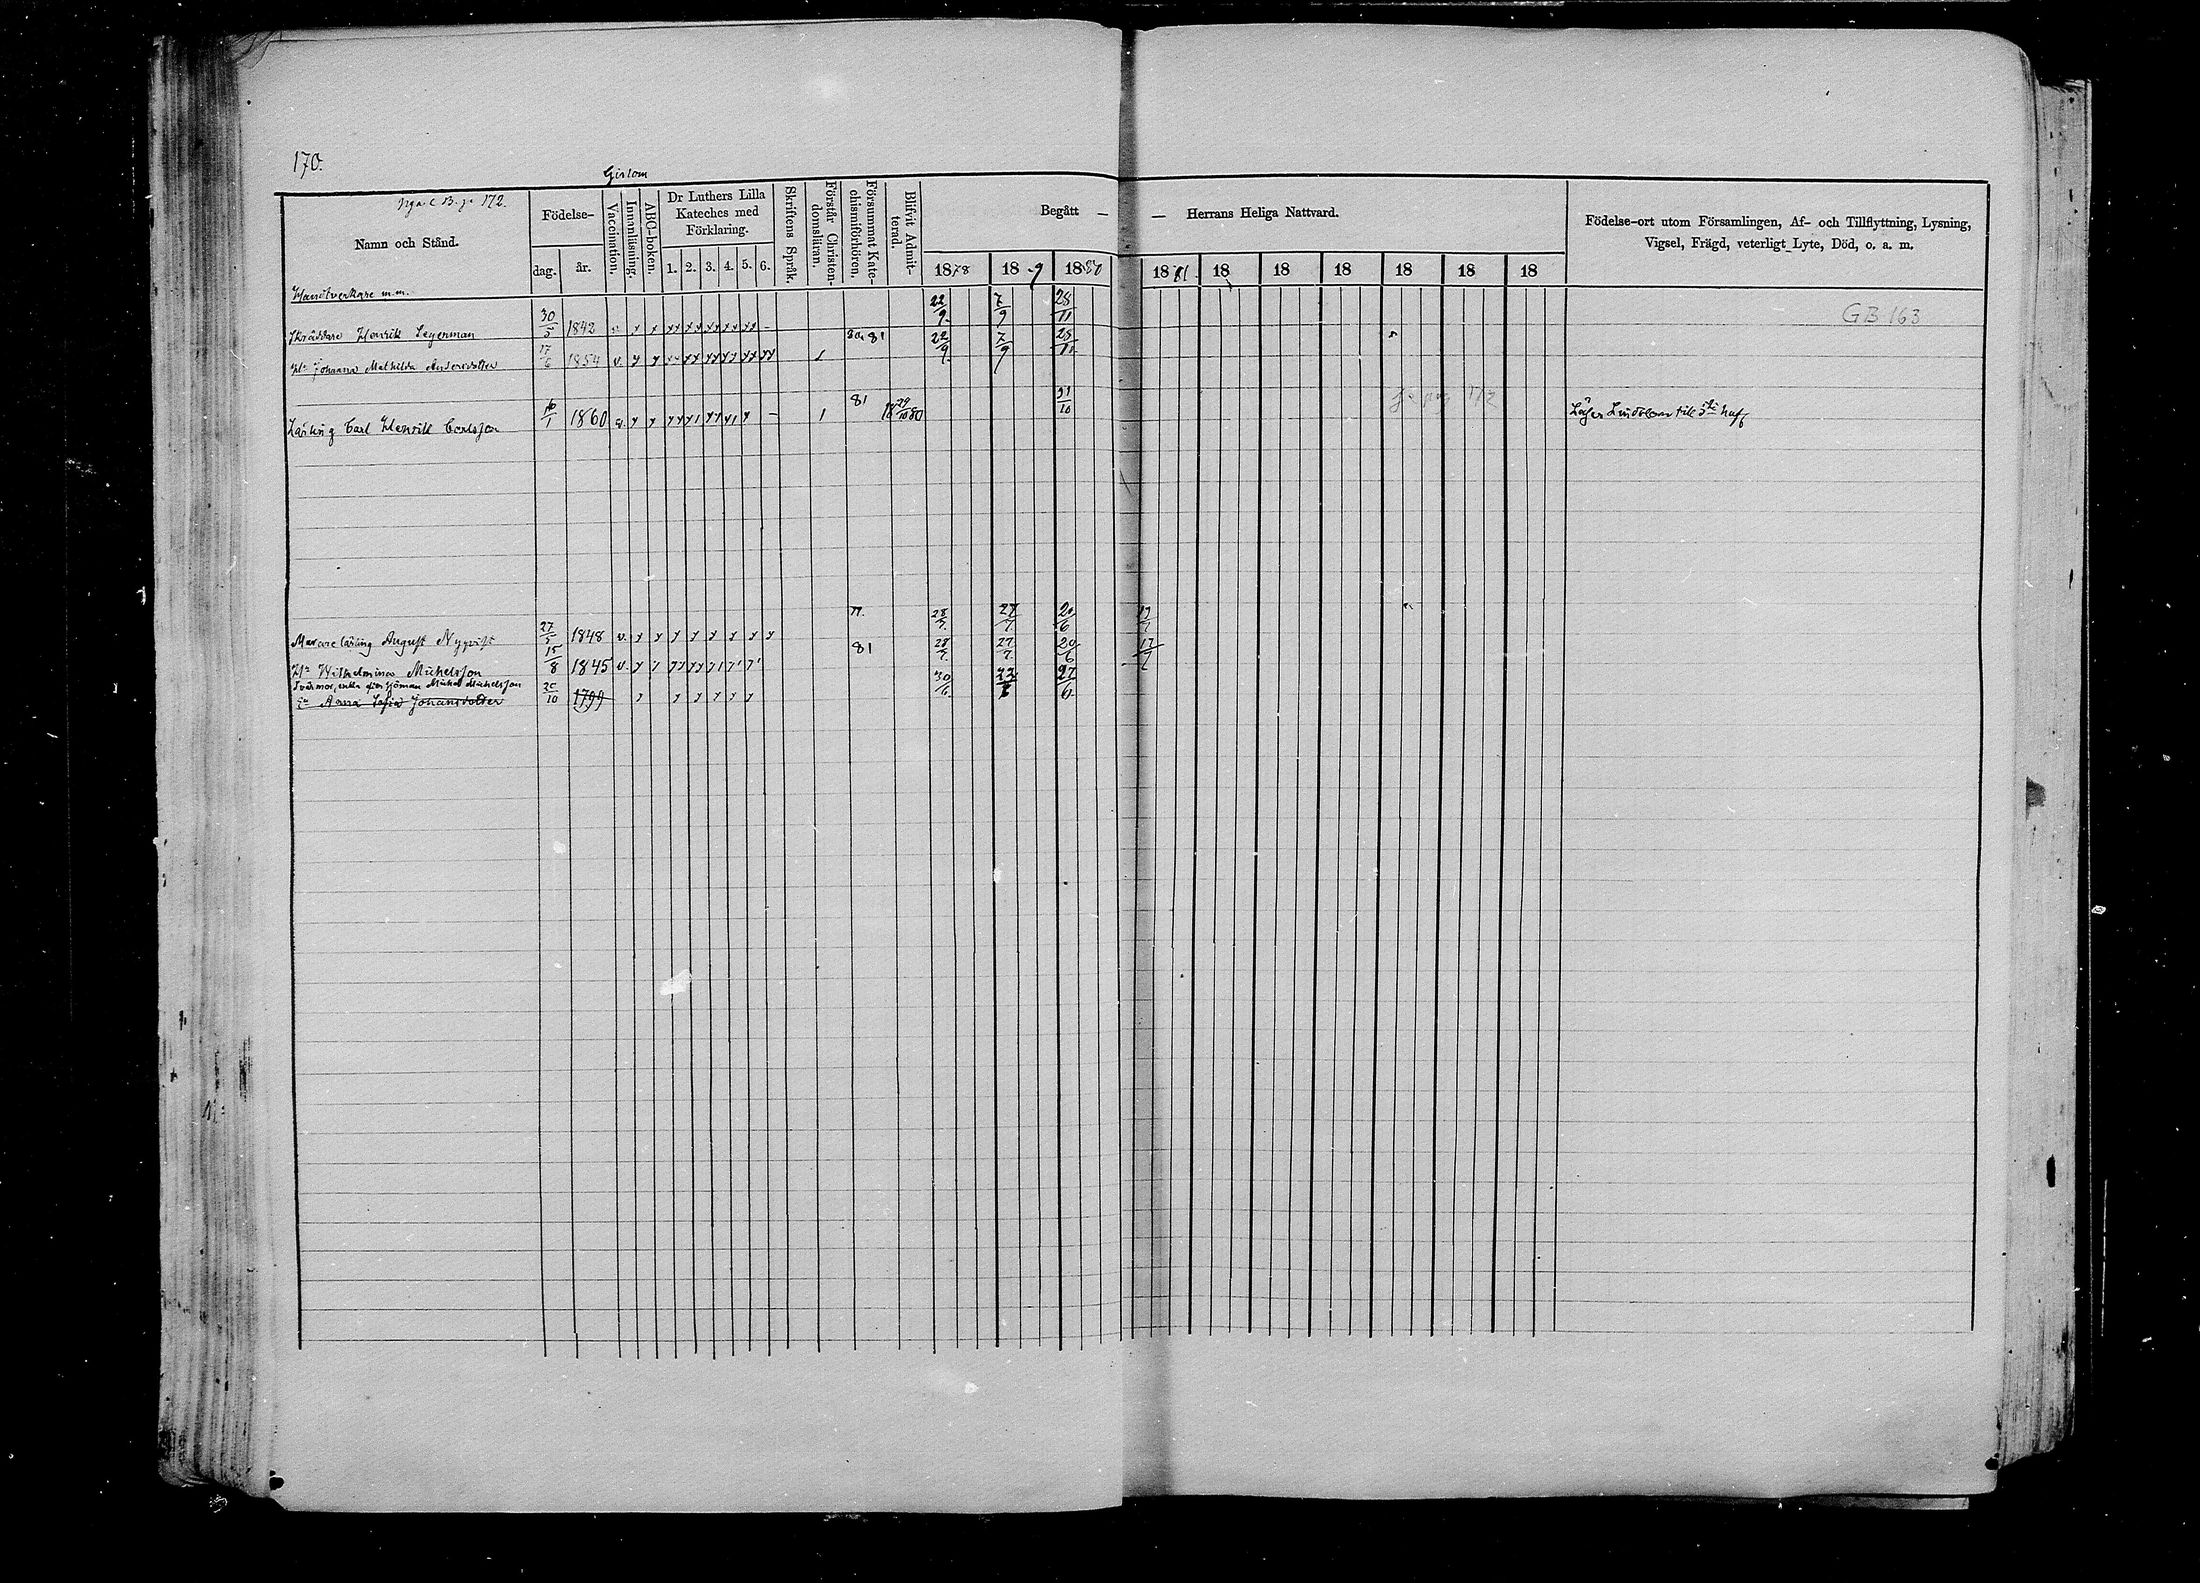 170.
Gislom
Nya C B. p. 172.
Namn och Stånd.
Födelse-
dag. år.
Vaccination.
Innanläsning.
ABC-boken.
Dr Luthers Lilla Kateches med Förklaring.
1. 2. 3. 4. 5. 6.
Skriftens Språk.
Förstår Christendomsläran.
Försummat Katechismiförhören.
Blifvit Admitterad.
Begått — — Herrans Heliga Nattvard.
1878 18 9 1880 1881 18 18 18 18 18 18
Födelse-ort utom Församlingen, Af- och Tillflyttning, Lysning,
Vigsel, Frägd, veterligt Lyte, Död, o. a. m.
Handtverkare m.m.
GB 163
Skräddare Henrik Segerman 30/5 1842 22/9 7/9 28/11
Hu Johanna Mathilda Andersdotter 17/6 1854 v. 1 80, 81 22/9 7/9 28/11
Lärling Carl Henrik Carlsson 16/1 1860 v. 1 81 18 29/10 80 31/10 172
Murare lärling August Nyqvist 27/5 1848 v. 77. 28/7. 27/7. 20/6 17/7
Hu Wilhelmina Michelsson 15/8 1845 v. 81 28/7. 27/7. 20/6 17/7
Svärmor, enka efter sjöman Michel Michelsson
Anna Sofia Johansdotter 25/10 1799 30/6. 22/6 27/6.